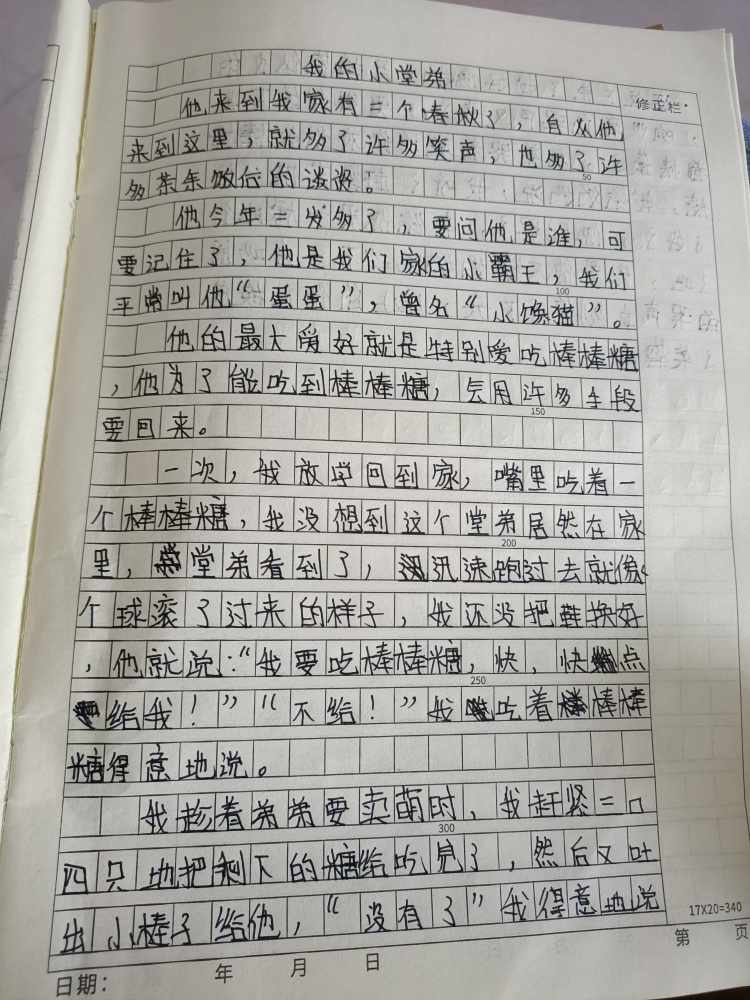 我的小堂弟
修正栏
他来到我家有三个春秋了,自从他
来到这里,就多了许多笑声,也多了许
50
多茶余饭后的谈资。
他今年三岁多了,要问他是谁,可
要记住了,他是我们家的小霸王,我们
100
平常叫他“蛋蛋”,曾名“小馋猫”。
他的最大爱好就是特别爱吃棒棒糖
,他为了能吃到棒棒糖,会用许多手段
150
要回来。
一次,我放学回到家,嘴里吃着一
个棒棒糖,我没想到这个堂弟居然在家
200
里,堂弟看到了,迅速跑过去就像
个球滚了过来的样子,我还没把鞋换好
,他就说:“我要吃棒棒糖,快,快点
250
给我!”“不给!”我吃着棒棒
糖得意地说。
我趁着弟弟要卖萌时,我赶紧三口
300
四只地把剩下的糖给吃完了,然后又吐
出小棒子给他,“没有了”我得意地说
17X20=340
日期: 年 月 日 第 页